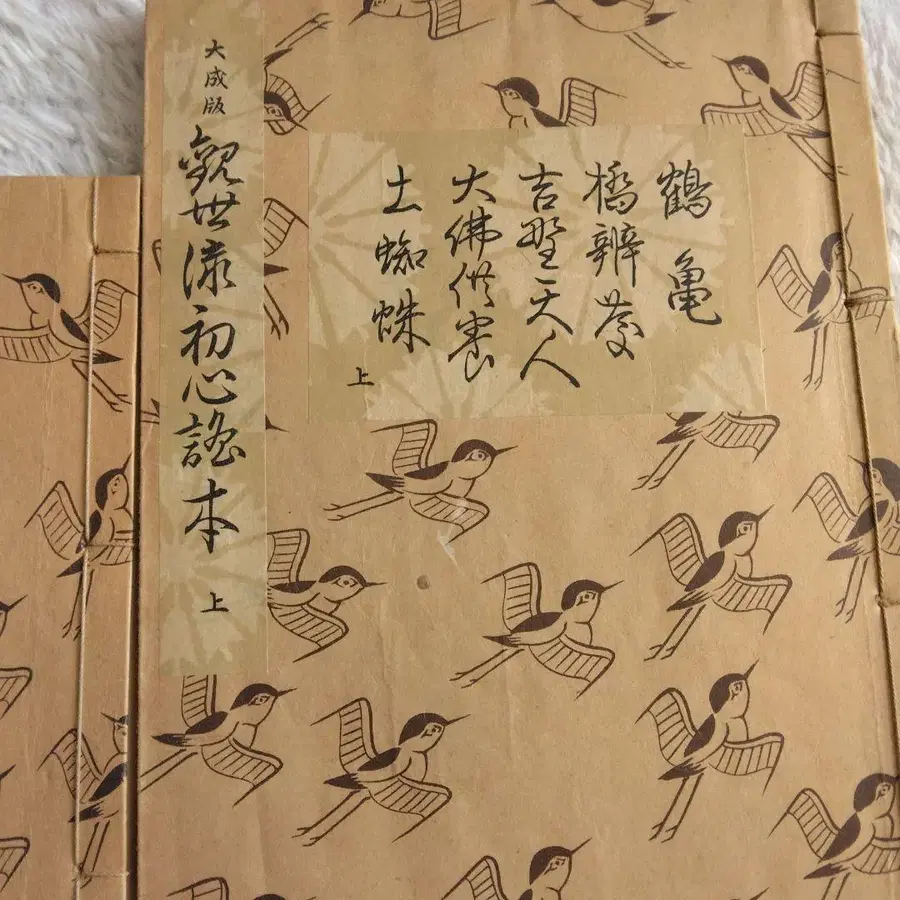 大成版
觀世流初心謠本 上
鶴亀
橋辨慶
吉野天人
大佛供養
土蜘蛛
上